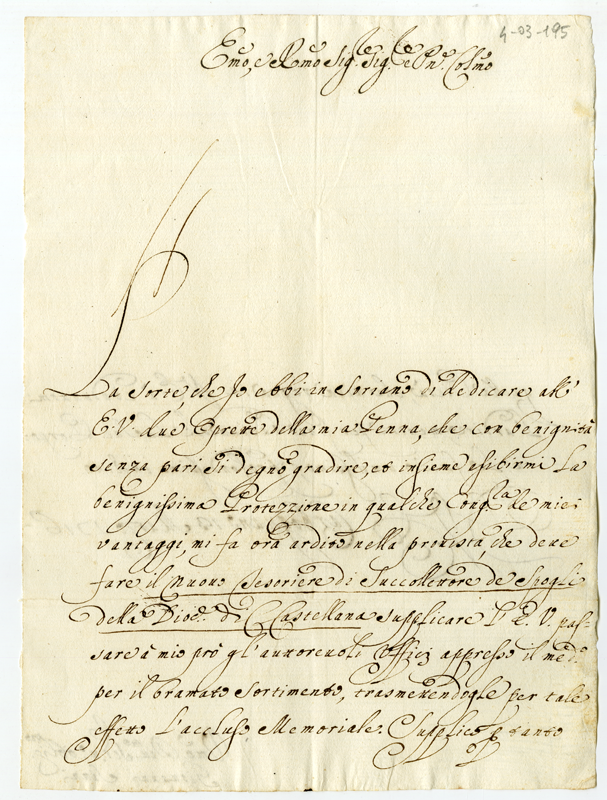 4-03-195
Emo, e Rmo Sig.re Sig.re e Pne. Colmo
La sorte, che Io ebbi in Soriano di dedicare all'
E.V. due Operette della mia Penna, che con benignità
senza pari si degnò gradire, et insieme esibirmi la
benignissima Protezzione in qualche Cong.ra de miei
vantaggi, mi fa ora ardito nella provista, che deve
fare il nuovo Tesoriere di Succollettore de Spogli
della Dioc. di C. Castellana supplicare l'E.V. pas-
sare à mio prò gl'autorevoli Officij appresso il med.o
per il bramato sortimento, trasmettendogle per tale
effetto l'accluso Memoriale. Supplico p tanto